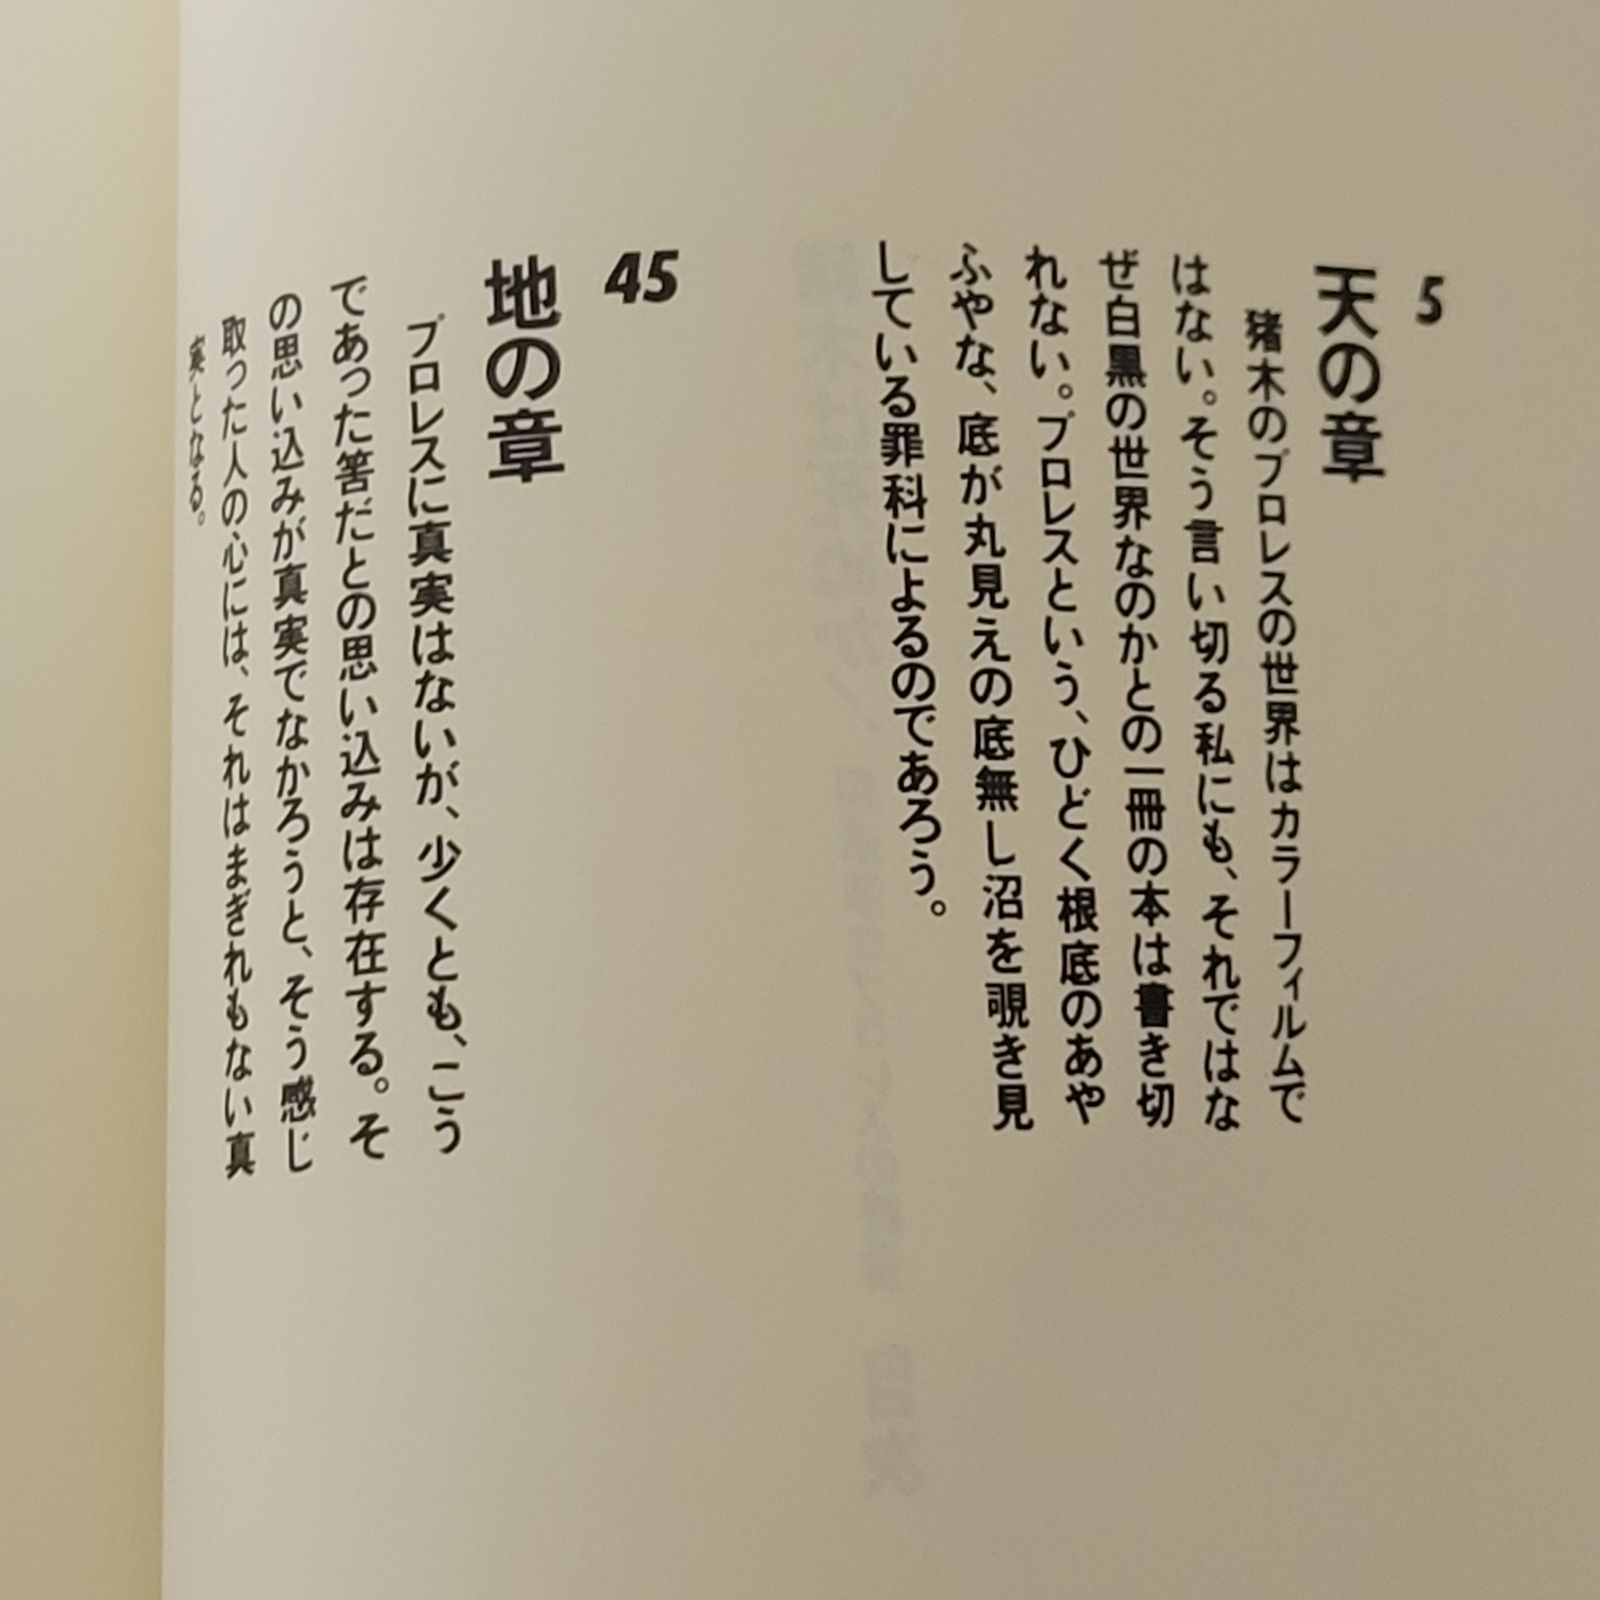 5
天の章
猪木のプロレスの世界はカラーフィルムで
はない。そう言い切る私にも、それではな
ぜ白黒の世界なのかとの一冊の本は書き切
れない。プロレスという、ひどく根底のあや
ふやな、底が丸見えの底無し沼を覗き見
している罪科によるのであろう。
45
地の章
プロレスに真実はないが、少くとも、こう
であった筈だとの思い込みは存在する。そ
の思い込みが真実でなかろうと、そう感じ
取った人の心には、それはまぎれもない真
実となる。